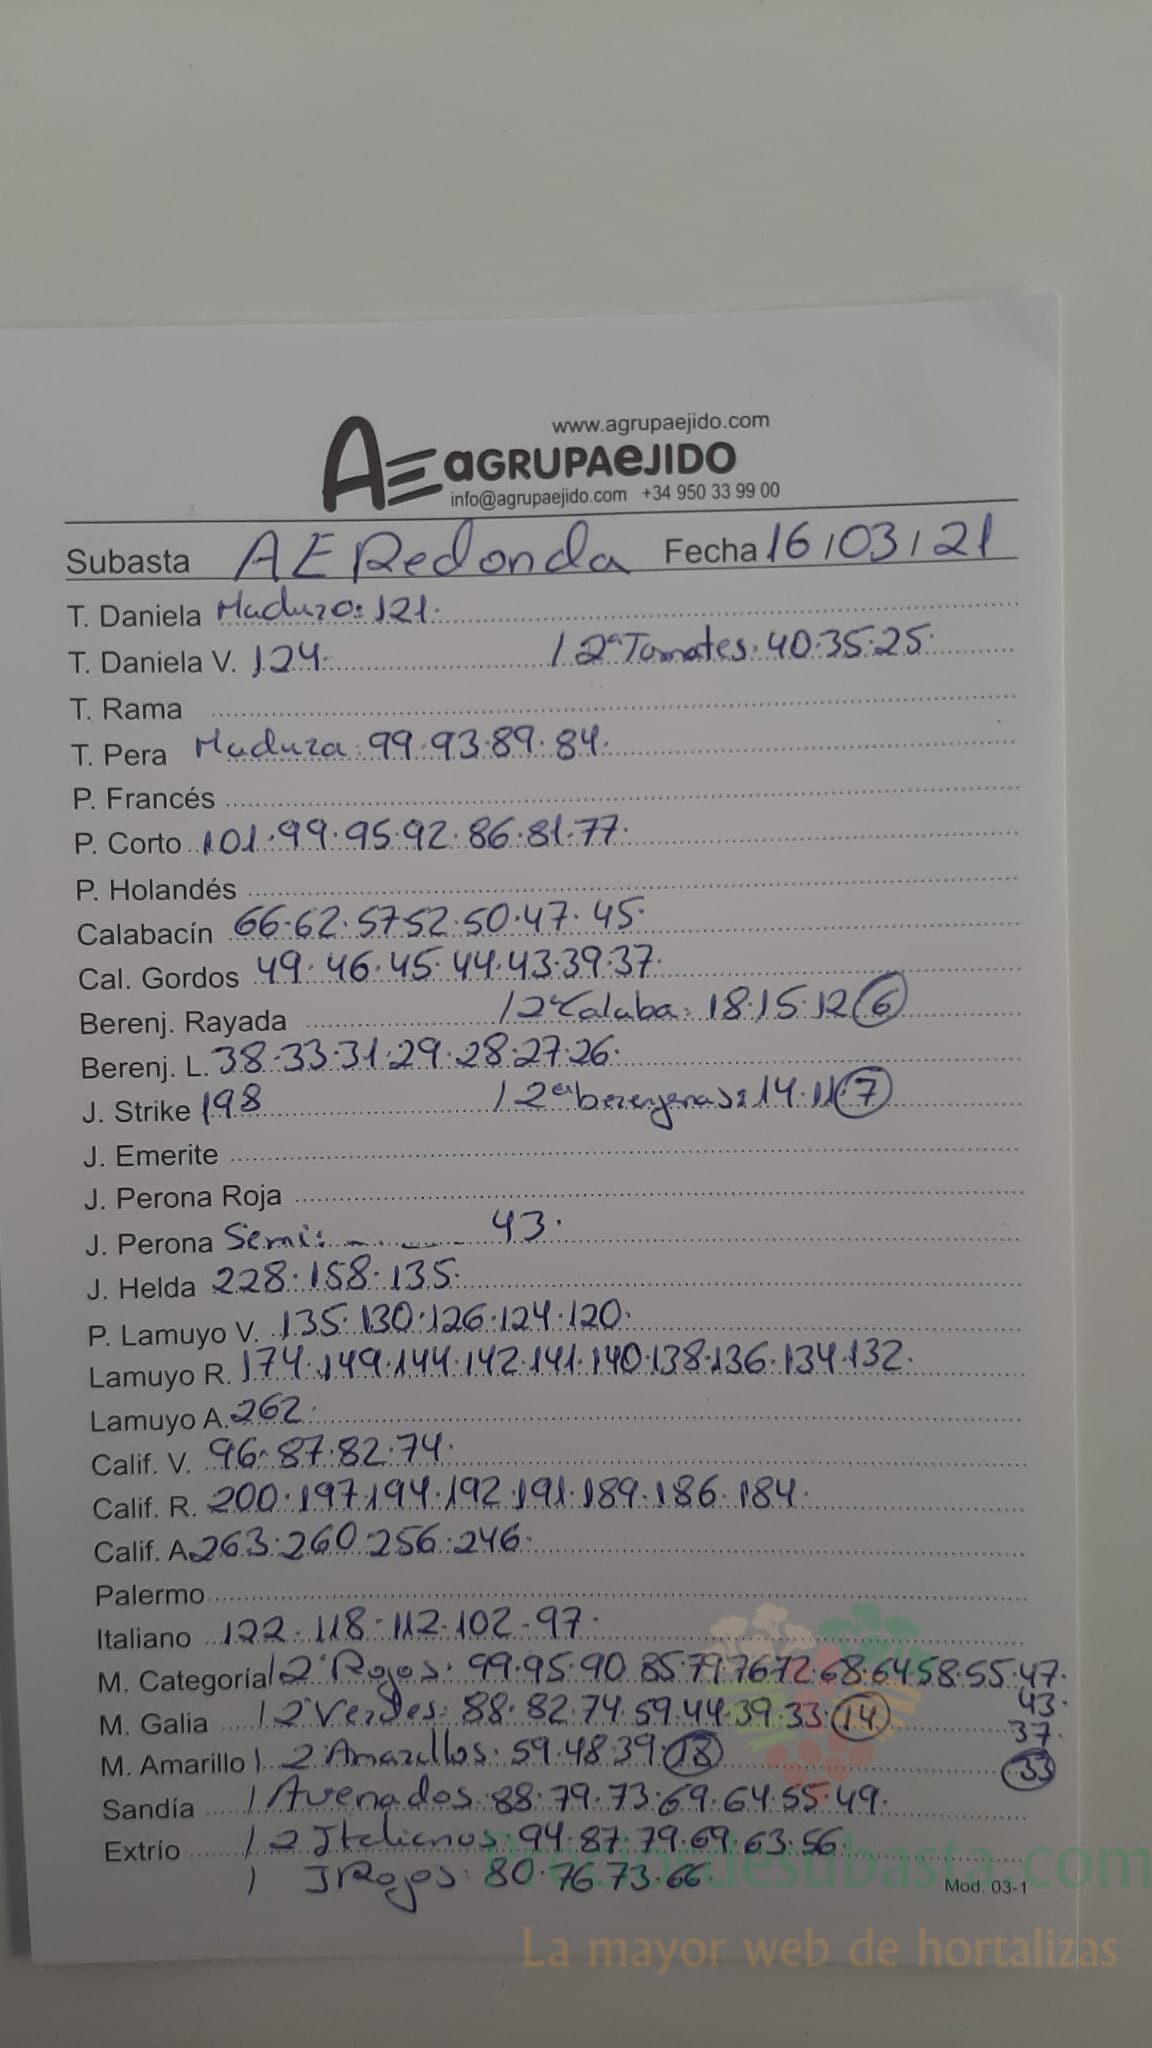 www.agrupaejido.com
AE aGRUPAeJIDO
info@agrupaejido.com +34 950 33 99 00
Subasta AE Redonda Fecha 16/03/21
T. Daniela Maduro: 121.
T. Daniela V. 124. / 2ª Tomates: 40.35.25.
T. Rama
T. Pera Madura: 99.93.89.84.
P. Francés
P. Corto 101.99.95.92.86.81.77.
P. Holandés
Calabacín 66.62.57.52.50.47.45.
Cal. Gordos 49.46.45.44.43.39.37.
Berenj. Rayada / 2ª Calaba: 18.15.12 (6)
Berenj. L. 38.33.31.29.28.27.26.
J. Strike 198 / 2ª berenjenas: 14.11.(7)
J. Emerite
J. Perona Roja
J. Perona Semi: 43.
J. Helda 228.158.135.
P. Lamuyo V. 135.130.126.124.120.
Lamuyo R. 174.149.144.142.141.140.138.136.134.132.
Lamuyo A. 262.
Calif. V. 96.87.82.74.
Calif. R. 200.197.194.192.191.189.186.184.
Calif. A. 263.260.256.246.
Palermo
Italiano 122.118.112.102.97.
M. Categoría / 2ª Rojos: 99.95.90.85.79.76.72.68.64.58.55.47.
43.
M. Galia / 2ª Verdes: 88.82.74.59.44.39.33.(14)
37.
M. Amarillo / 2 Amarillos: 59.48.39.(18)
(33)
Sandía / Avenados: 88.79.73.69.64.55.49.
Extrío / 2 Italianos: 94.87.79.69.63.56.
/ I Rojos: 80.76.73.66.
Mod. 03-1
desubasta.com
La mayor web de hortalizas